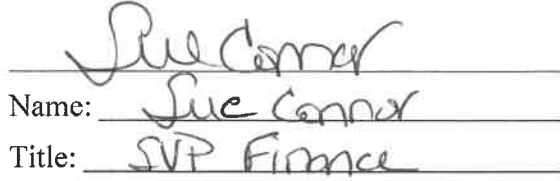 Sue Connor
Name: Sue Connor
Title: SVP Finance